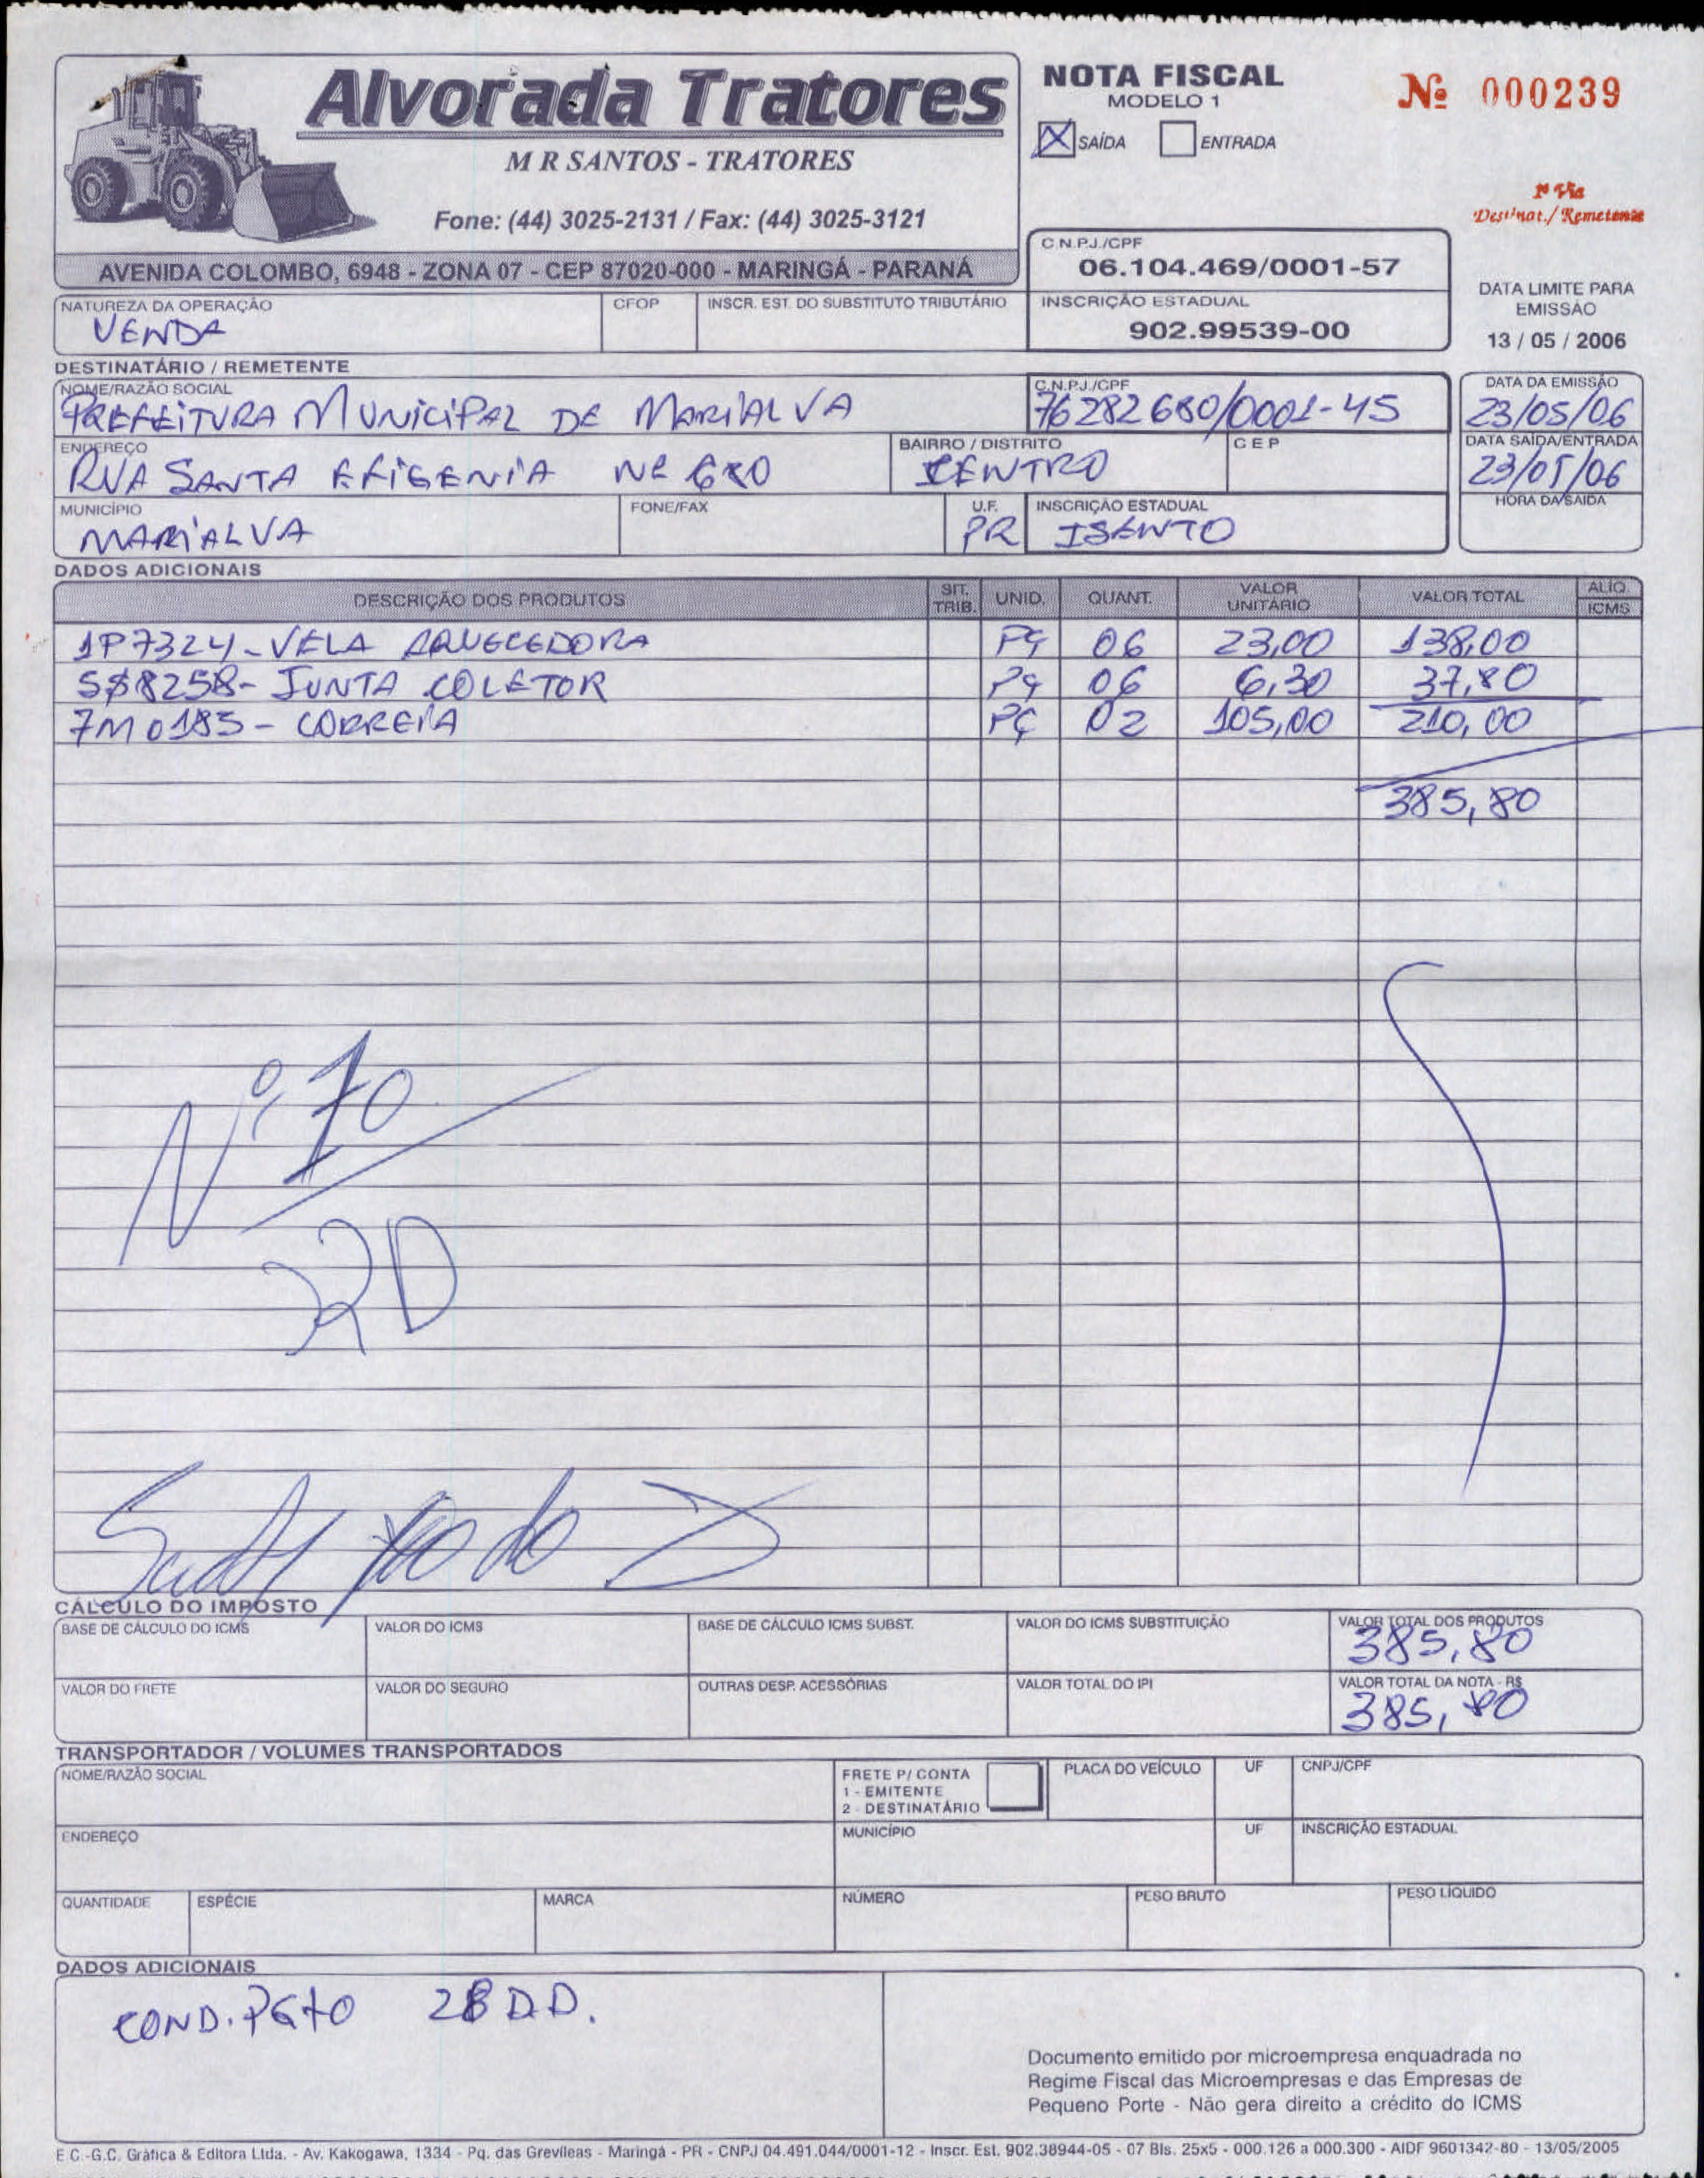 Alvorada Tratores
M R SANTOS - TRATORES
Fone: (44) 3025-2131 / Fax: (44) 3025-3121
AVENIDA COLOMBO, 6948 - ZONA 07 - CEP 87020-000 - MARINGÁ - PARANÁ
NOTA FISCAL
MODELO 1
X SAÍDA ENTRADA
Nº 000239
1ª Via
Destinat./ Remetente
C.N.P.J./CPF
06.104.469/0001-57
INSCRIÇÃO ESTADUAL
902.99539-00
DATA LIMITE PARA
EMISSÃO
13 / 05 / 2006
NATUREZA DA OPERAÇÃO CFOP INSCR. EST. DO SUBSTITUTO TRIBUTÁRIO
VENDA
DESTINATÁRIO / REMETENTE
NOME/RAZÃO SOCIAL C.N.P.J./CPF DATA DA EMISSÃO
PREFEITURA MUNICIPAL DE MARIALVA 76282680/0001-45 23/05/06
ENDEREÇO BAIRRO / DISTRITO CEP DATA SAÍDA/ENTRADA
RUA SANTA EFIGENIA Nº 680 CENTRO 23/05/06
MUNICÍPIO FONE/FAX U.F. INSCRIÇÃO ESTADUAL HORA DA SAÍDA
MARIALVA PR ISENTO
DADOS ADICIONAIS
DESCRIÇÃO DOS PRODUTOS SIT. TRIB. UNID. QUANT. VALOR UNITÁRIO VALOR TOTAL ALÍQ. ICMS
1P7324 - VELA AQUECEDORA PÇ 06 23,00 138,00
5S8258 - JUNTA COLETOR PÇ 06 6,30 37,80
7M0185 - CORREIA PÇ 02 105,00 210,00
385,80
Nº 70
CÁLCULO DO IMPOSTO
BASE DE CÁLCULO DO ICMS VALOR DO ICMS BASE DE CÁLCULO ICMS SUBST. VALOR DO ICMS SUBSTITUIÇÃO VALOR TOTAL DOS PRODUTOS
385,80
VALOR DO FRETE VALOR DO SEGURO OUTRAS DESP. ACESSÓRIAS VALOR TOTAL DO IPI VALOR TOTAL DA NOTA - R$
385,80
TRANSPORTADOR / VOLUMES TRANSPORTADOS
NOME/RAZÃO SOCIAL FRETE P/ CONTA PLACA DO VEÍCULO UF CNPJ/CPF
1 - EMITENTE
2 - DESTINATÁRIO
ENDEREÇO MUNICÍPIO UF INSCRIÇÃO ESTADUAL
QUANTIDADE ESPÉCIE MARCA NÚMERO PESO BRUTO PESO LÍQUIDO
DADOS ADICIONAIS
COND. PGTO 28 D.D.
Documento emitido por microempresa enquadrada no
Regime Fiscal das Microempresas e das Empresas de
Pequeno Porte - Não gera direito a crédito do ICMS
E.C.-G.C. Gráfica & Editora Ltda. - Av. Kakogawa, 1334 - Pq. das Grevíleas - Maringá - PR - CNPJ 04.491.044/0001-12 - Inscr. Est. 902.38944-05 - 07 Bls. 25x5 - 000.126 a 000.300 - AIDF 9601342-80 - 13/05/2005